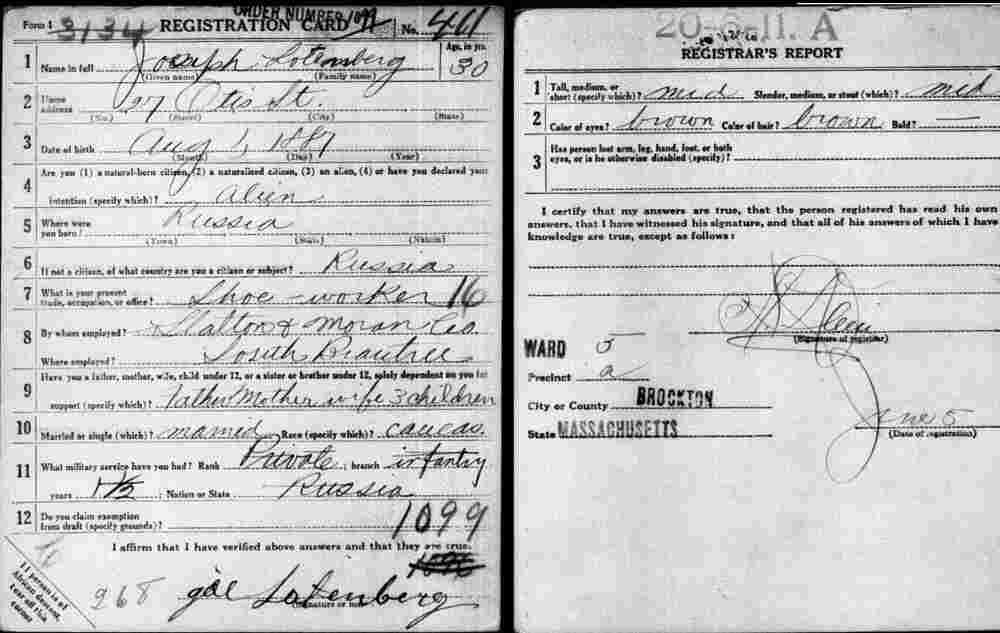 ORDER NUMBER 1099
Form 1 3134 REGISTRATION CARD No. 461
1 Name in full Joseph Lotenberg Age, in yrs. 30
(Given name) (Family name)
2 Home address 27 Otis St.
(No.) (Street) (City) (State)
3 Date of birth Aug 1, 1887
(Month) (Day) (Year)
4 Are you (1) a natural-born citizen, (2) a naturalized citizen, (3) an alien, (4) or have you declared your
intention (specify which)? alien
5 Where were you born? Russia
(Town) (State) (Nation)
6 If not a citizen, of what country are you a citizen or subject? Russia
7 What is your present trade, occupation, or office? Shoe-worker 16
8 By whom employed? & Moran Co.
Where employed? South Braintree
9 Have you a father, mother, wife, child under 12, or a sister or brother under 12, solely dependent on you for
support (specify which)? Father Mother wife 3 children
10 Married or single (which)? married Race (specify which)? caucas.
11 What military service have you had? Rank Private; branch infantry
years 1 1/2; Nation or State Russia
12 Do you claim exemption from draft (specify grounds)?
1099
I affirm that I have verified above answers and that they are true.
268 Lotenberg
(Signature or mark)
If person is of
African descent,
tear off this
corner
20-6-11. A
REGISTRAR'S REPORT
1 Tall, medium, or short (specify which)? mid Slender, medium, or stout (which)? mid
2 Color of eyes? brown Color of hair? brown Bald? —
3 Has person lost arm, leg, hand, foot, or both eyes, or is he otherwise disabled (specify)?
I certify that my answers are true, that the person registered has read his own
answers, that I have witnessed his signature, and that all of his answers of which I have
knowledge are true, except as follows:
(Signature of registrar)
WARD 5
Precinct a
City or County BROCKTON
State MASSACHUSETTS
June 5
(Date of registration)